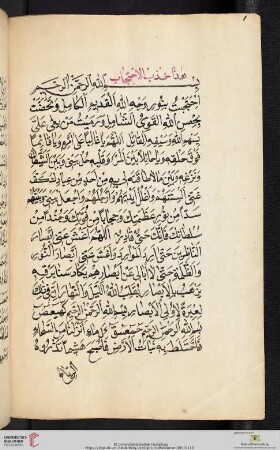 هذا حزب الاحتجاب
بسم الله الرحمن الرحيم
احتجبت بنور وجه الله القديم الكامل وتحصنت
بحصن الله القوي الشامل ورميت من بغى علي
بسهم الله وسيفه القاتل اللهم يا غالبا على امره ويا قائما
فوق خلقه ويا حائلا بين المرء وقلبه حل بيني وبين الشيطان
ونزغه وبين ما لا طاقة لي به من احد من عبادك كف
عني السنتهم واغلل ايديهم وارجلهم واجعل بيني وبينهم
سدا من نور عظمتك وحجابا من قوتك وجندا من
سلطانك فانك حي قادر اللهم اغش عني ابصار
الناظرين حتى ارد الموارد واغش عني ابصار النور
والظلمة حتى لا ابالي عن ابصارهم يكاد سنا برقه
يذهب بالابصار يقلب الله الليل والنهار ان في ذلك
لعبرة لاولي الابصار بسم الله الرحمن الرحيم كهيعص
بسم الله الرحمن الرحيم حمعسق كماء انزلناه من السماء
فاختلط به نبات الارض فاصبح هشيما تذروه
الرياح